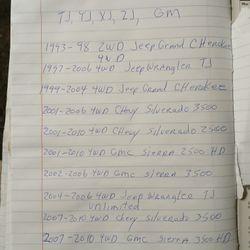 TJ, YJ, XJ, ZJ, GM
1993-98 2WD Jeep Grand Cherokee
4WD
1997-2006 4WD Jeep Wrangler TJ
1999-2004 4WD Jeep Grand Cherokee
2001-2006 4WD Chevy Silverado 3500
2001-2010 4WD Chevy Silverado 2500
2001-2010 4WD GMC Sierra 2500 HD
2002-2006 4WD GMC Sierra 3500
2004-2006 4WD Jeep Wrangler TJ
Unlimited
2007-2010 4WD Chevy Silverado 3500
2007-2010 4WD GMC Sierra 3500 HD